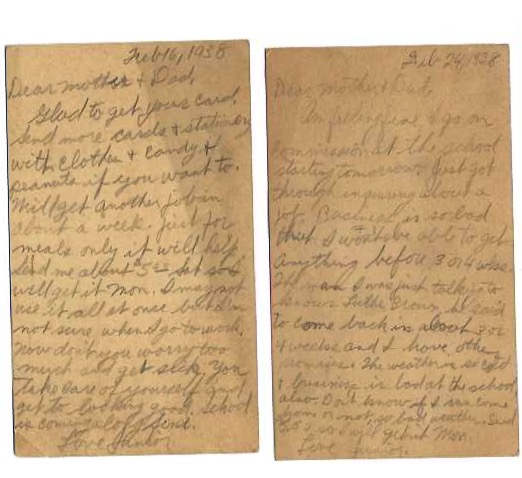 Feb 16, 1938
Dear mother & Dad,
Glad to get your card.
Send more cards & stationery
with clothes & candy &
peanuts if you want to.
Will get another job in
about a week. just for
meals only it will help
Send me about 5.00 Sat so I
will get it Mon. I may not
use it all at once but I'm
not sure when I go to work.
Now don't you worry too
much and get sick. You
take care of yourself and
get to looking good. School
is coming along fine.
Love Junior.
Feb 24, 1938
Dear mother & Dad,
Am feeling fine & go on
commission at the school
starting tomorrow. Just got
through inquiring about a
job. Business is so bad
that I won't be able to get
anything before 3 or 4 weeks.
The man I was just talking to
knows Luthe Brown, he said
to come back in about 3 or
4 weeks and I have other
promises. The weather is so cold
& business is bad at the school
also. Don't know if I can come
home or not, go bad weather. Send
so I will get it Mon.
Love Junior.